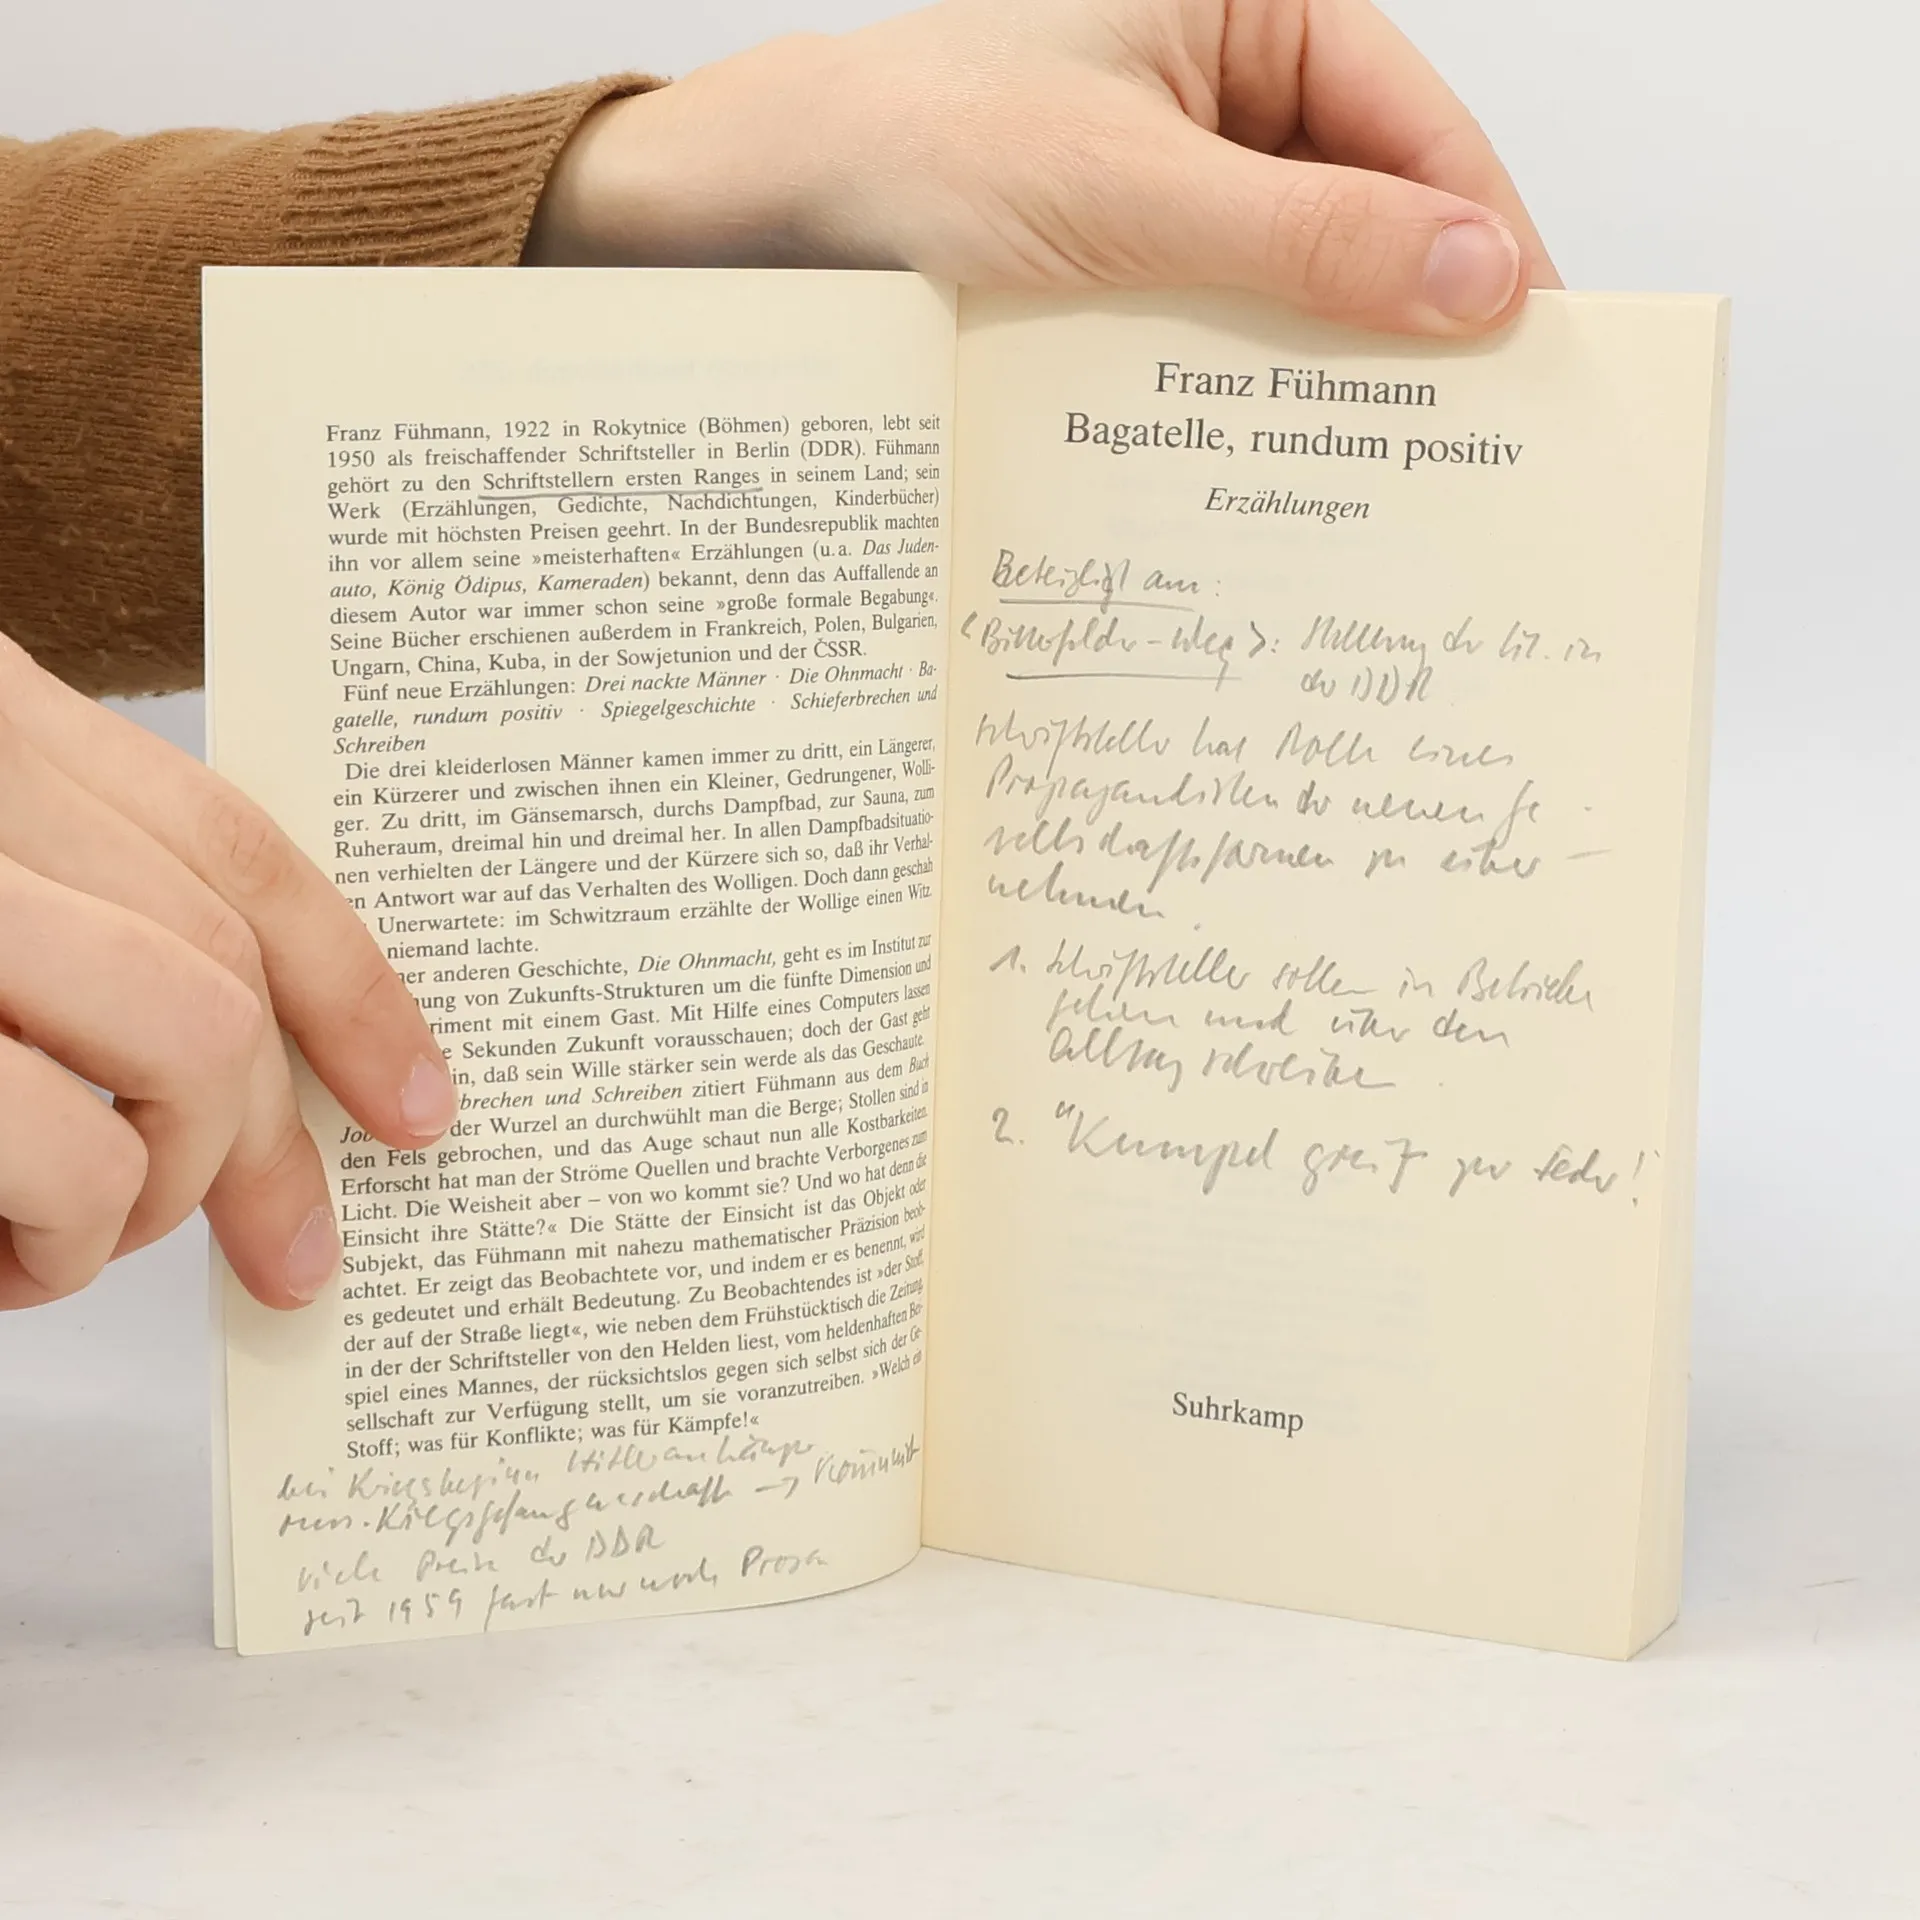 Franz Fühmann, 1922 in Rokytnice (Böhmen) geboren, lebt seit
1950 als freischaffender Schriftsteller in Berlin (DDR). Fühmann
gehört zu den Schriftstellern ersten Ranges in seinem Land; sein
Werk (Erzählungen, Gedichte, Nachdichtungen, Kinderbücher)
wurde mit höchsten Preisen geehrt. In der Bundesrepublik machten
ihn vor allem seine »meisterhaften« Erzählungen (u.a. Das Juden-
auto, König Ödipus, Kameraden) bekannt, denn das Auffallende an
diesem Autor war immer schon seine »große formale Begabung«.
Seine Bücher erschienen außerdem in Frankreich, Polen, Bulgarien,
Ungarn, China, Kuba, in der Sowjetunion und der ČSSR.
Fünf neue Erzählungen: Drei nackte Männer · Die Ohnmacht · Ba-
gatelle, rundum positiv · Spiegelgeschichte · Schieferbrechen und
Schreiben
Die drei kleiderlosen Männer kamen immer zu dritt, ein Längerer,
ein Kürzerer und zwischen ihnen ein Kleiner, Gedrungener, Wolli-
ger. Zu dritt, im Gänsemarsch, durchs Dampfbad, zur Sauna, zum
Ruheraum, dreimal hin und dreimal her. In allen Dampfbadsituatio-
nen verhielten der Längere und der Kürzere sich so, daß ihr Verhal-
en Antwort war auf das Verhalten des Wolligen. Doch dann geschah
Unerwartete: im Schwitzraum erzählte der Wollige einen Witz
niemand lachte.
ner anderen Geschichte, Die Ohnmacht, geht es im Institut zur
hung von Zukunfts-Strukturen um die fünfte Dimension und
riment mit einem Gast. Mit Hilfe eines Computers lassen
e Sekunden Zukunft vorausschauen; doch der Gast geht
in, daß sein Wille stärker sein werde als das Geschaute.
brechen und Schreiben zitiert Fühmann aus dem Buch
Job der Wurzel an durchwühlt man die Berge; Stollen sind in
den Fels gebrochen, und das Auge schaut nun alle Kostbarkeiten.
Erforscht hat man der Ströme Quellen und brachte Verborgenes zum
Licht. Die Weisheit aber – von wo kommt sie? Und wo hat denn die
Einsicht ihre Stätte?« Die Stätte der Einsicht ist das Objekt oder
Subjekt, das Fühmann mit nahezu mathematischer Präzision beob-
achtet. Er zeigt das Beobachtete vor, und indem er es benennt, wird
es gedeutet und erhält Bedeutung. Zu Beobachtendes ist »der Stoff,
der auf der Straße liegt«, wie neben dem Frühstücktisch die Zeitung,
in der der Schriftsteller von den Helden liest, vom heldenhaften Bei-
spiel eines Mannes, der rücksichtslos gegen sich selbst sich der Ge-
sellschaft zur Verfügung stellt, um sie voranzutreiben. »Welch ein
Stoff; was für Konflikte; was für Kämpfe!«
bei Kriegsbeginn Hitleranhänger
russ. Kriegsgefangenschaft → Kommunist
viele Preise der DDR
seit 1959 fast nur noch Prosa
Franz Fühmann
Bagatelle, rundum positiv
Erzählungen
Beteiligt am:
<Bitterfelder-Weg>: Stellung der Lit. in
der DDR
Schriftsteller hat Rolle eines
Propagandisten der neuen Ge-
sellschaftsformen zu über-
nehmen
1. Schriftsteller sollen in Betriebe
gehen und über den
Alltag schreiben.
2. "Kumpel greif zur Feder!
Suhrkamp